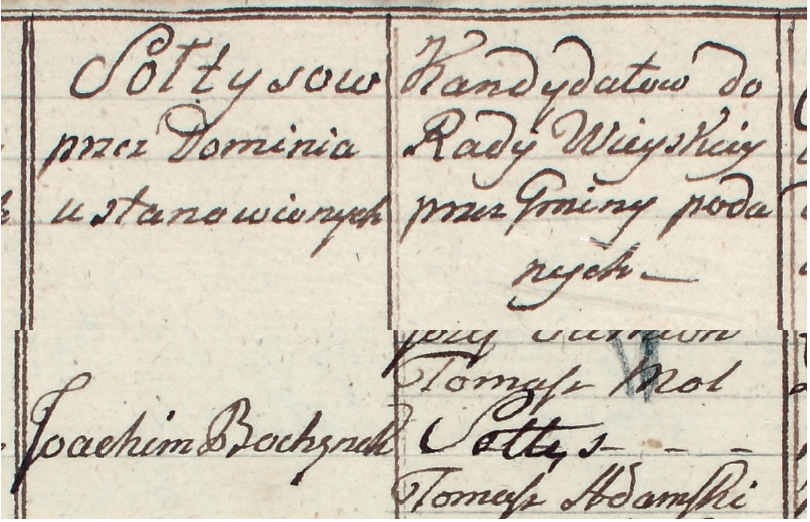 Sołtysow
przez Dominia
ustanowionych
Kandydatow do
Rady Wieyskiey
przez Gminy poda
nych
Joachim Bochynek
Tomasz Mol
Sołtys - - -
Tomasz Adamski